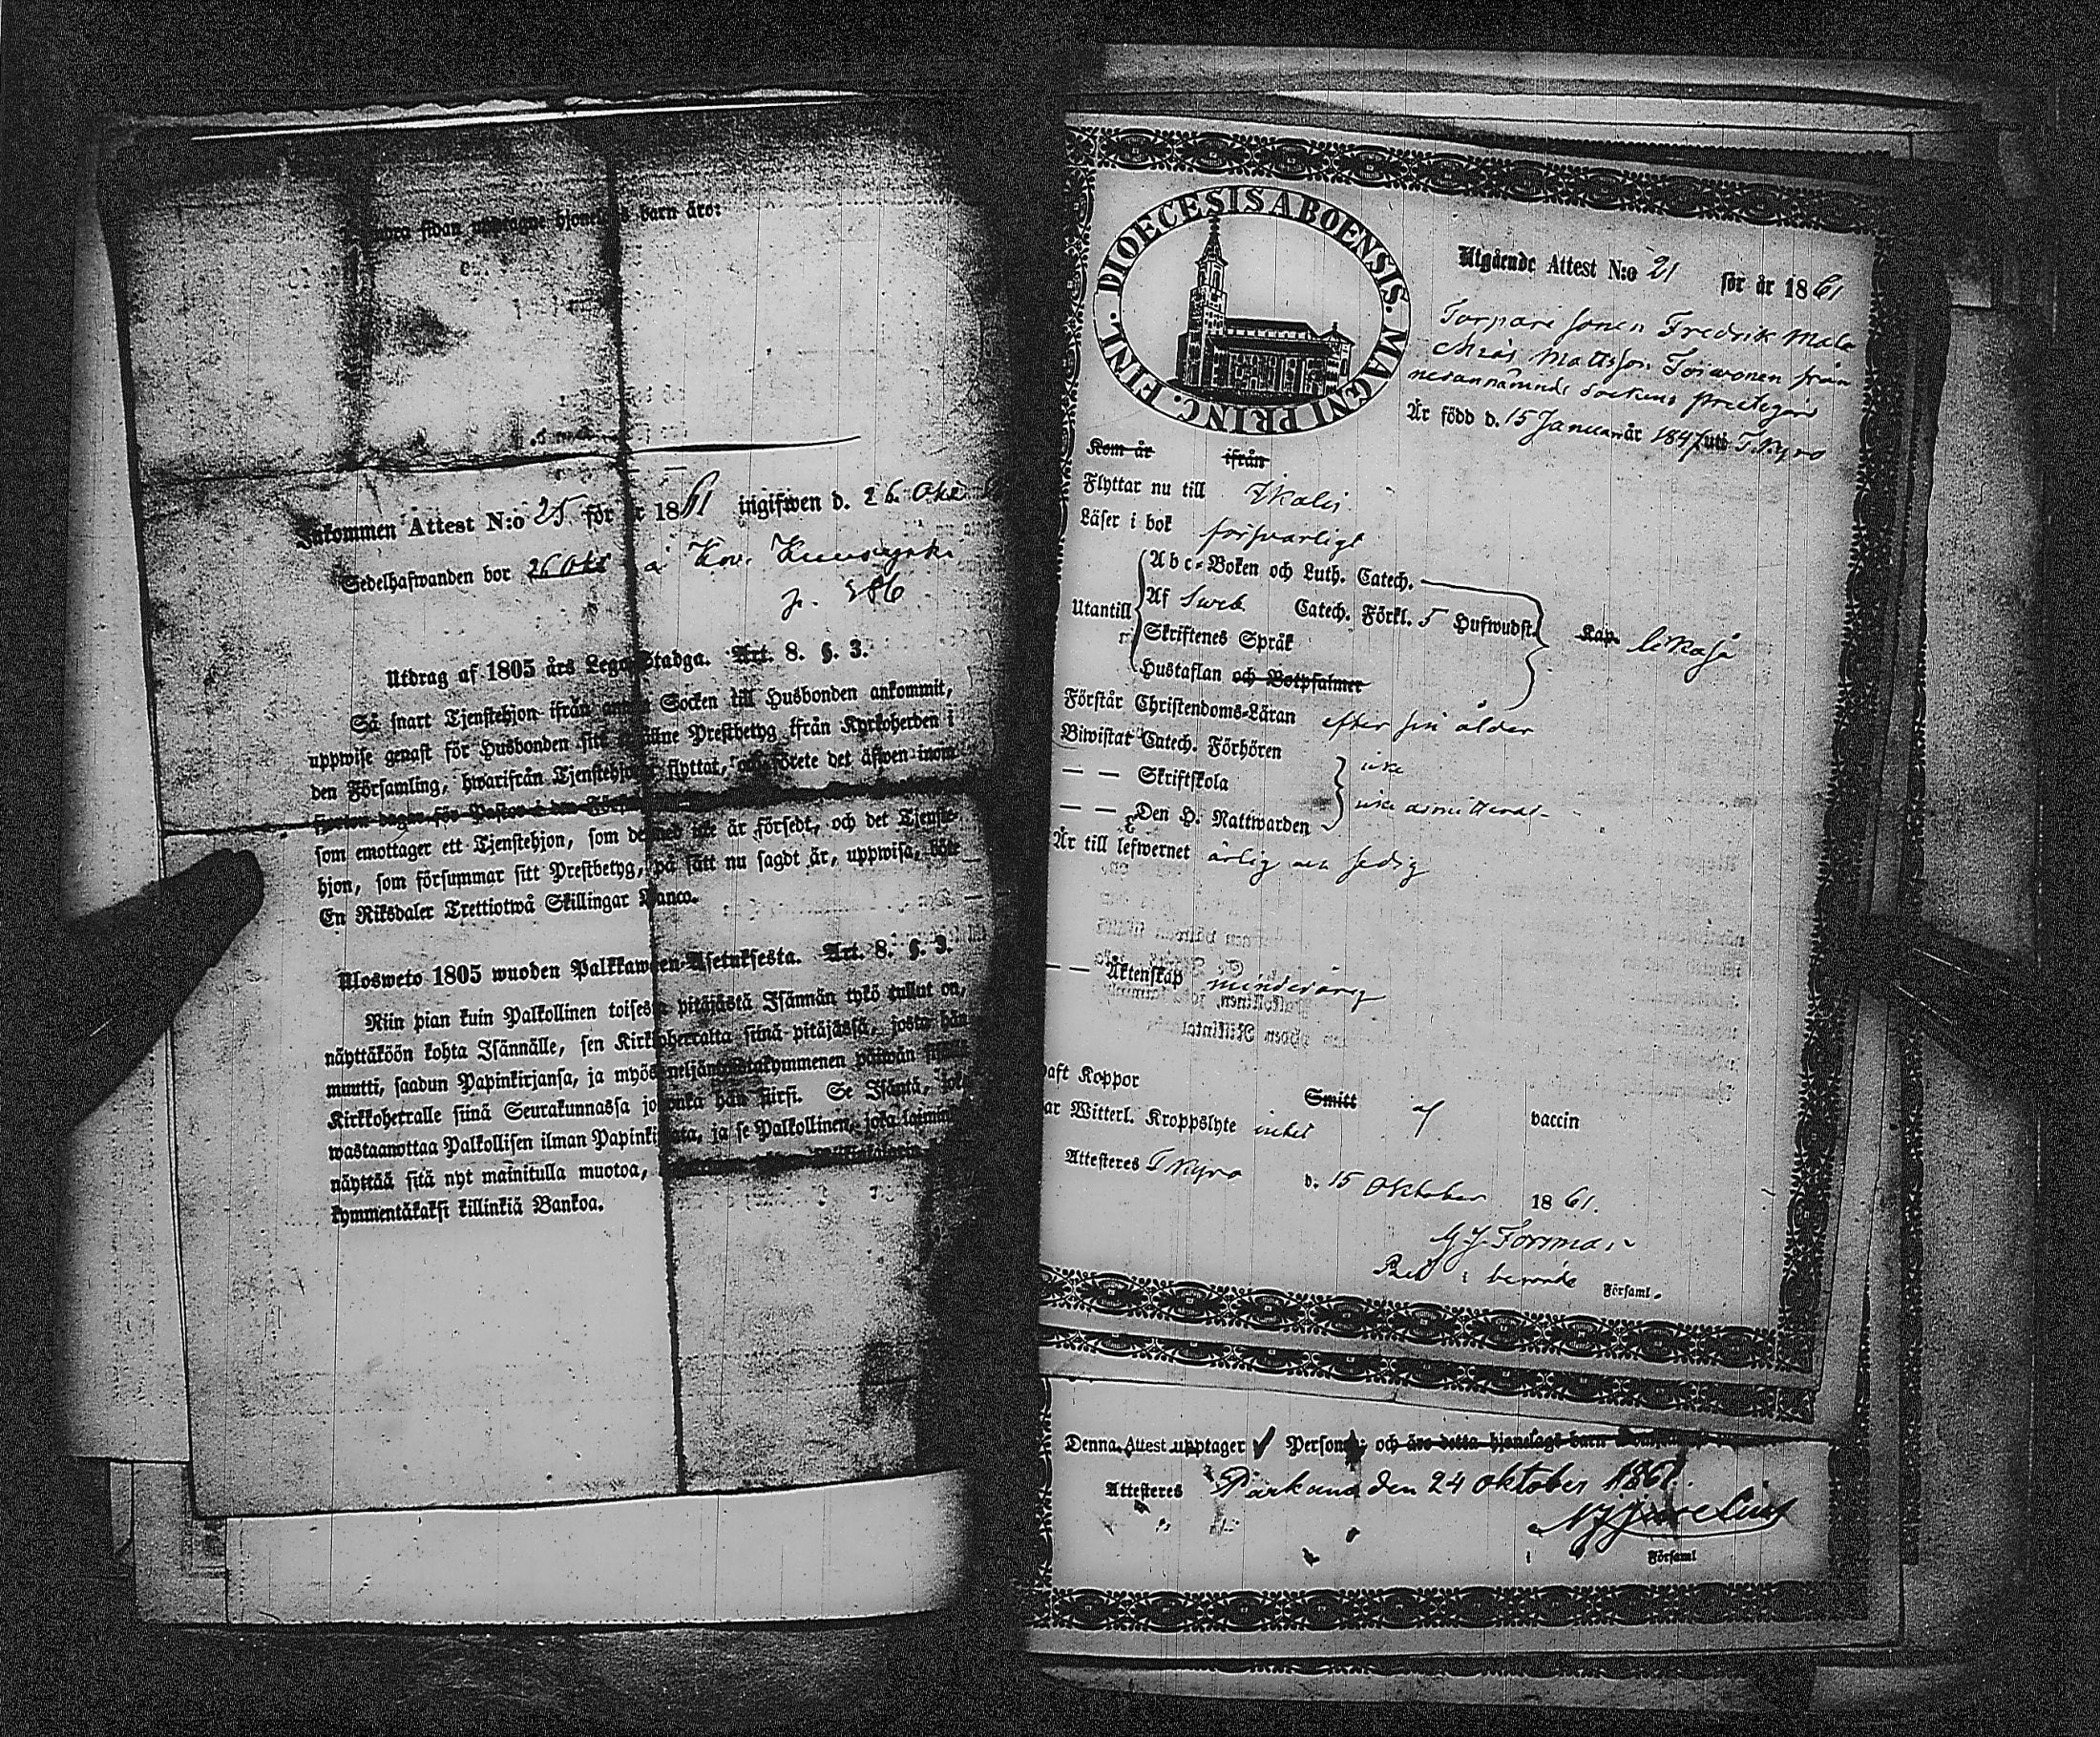 sidan upptagne hjonelags barn äro:
Inkommen Attest N:o 25 för år 1861 ingifwen d. 26 Okt
Sedelhafwanden bor 26 Okt å
p. 386
Utdrag af 1805 års Lego-Stadga. Art. 8. §. 3.
Så snart Tjenstehjon ifrån annan Socken till Husbonden ankommit,
uppwise genast för Husbonden sitt Prestbetyg ifrån Kyrkoherden i
den Församling, hwarifrån Tjenstehjonet flyttat, förete det äfwen inom
fjorton dagar för Pastor i den
som emottager ett Tjenstehjon, som dermed icke är försedt, och det Tjenste-
hjon, som försummar sitt Prestbetyg, på sätt nu sagdt är, uppwisa, böte
En Riksdaler Trettiotwå Skillingar Banco.
Ulosweto 1805 wuoden Palkkawäen-Asetuksesta. Art. 8. §. 3.
Niin pian kuin Palkollinen toisesta pitäjästä Isännän tykö tullut on,
näyttäköön kohta Isännälle, sen Kirkkoherralta siinä pitäjässä, josta hän
muutti, saadun Papinkirjansa, ja myös neljäntoistakymmenen päiwän sisällä
Kirkkoherralle siinä Seurakunnassa johonka hän siirsi. Se Isäntä, joka
wastaanottaa Palkollisen ilman Papinkirjata, ja se Palkollinen, joka laimin
näyttää sitä nyt mainitulla muotoa,
kymmentäkaksi killinkiä Bankoa.
DIOECESIS ABOENSIS. MAGNI PRINC. FINL.
Utgående Attest N:o 21 för år 1861
Torpare sonen Fredrik Mala
Mattsson Toiwonen från
nedannämnde Sockens prestgård
Är född d. 15 Januari år 1847 uti T.Kyro
Kom år ifrån
Flyttar nu till Ikalis
Läser i bok försvarligt
Abc-Boken och Luth. Catech.
Utantill Af Sweb. Catech. Förkl. 5 Hufwudst. Kap. likaså
Skriftenes Språk
Hustaflan och Botpsalmer
Förstår Christendoms-Läran efter sin ålder
Biwistat Catech. Förhören icke
— — Skriftskola
— — Den H. Nattwarden icke admitterad
Är till lefwernet ärlig och sedig
— — Äktenskap minderårig
haft Koppor Smitt af vaccin
har Witterl. Kroppslyte intet
Attesteres T Kyro d. 15 Oktober 1861.
G J Forsman
i berörde Församl.
Denna Attest upptager 1 Person; och äro detta hjonelags barn
Attesteres Parkano den 24 oktober 1861.
i Församl